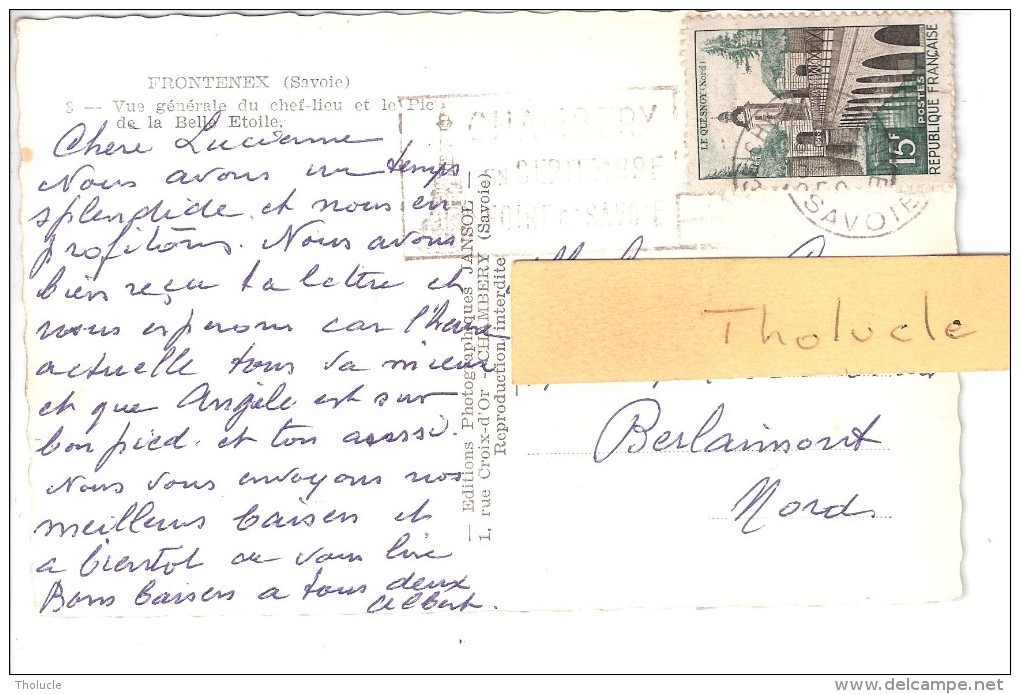 FRONTENEX (Savoie)
3 — Vue générale du chef-lieu et le Pic
de la Belle Etoile.
Chère Lucienne
Nous avons un temps
splendide et nous en
profitons. Nous avons
bien reçu ta lettre et
nous esperons car l'heure
actuelle tous va mieux
et que Angèle est sur
bon pied. et ton aussi.
Nous vous envoyons nos
meilleurs baisers et
a bientot de vous lire
Bons baisers a tous deux
Albert.
— Editions Photographiques JANSOL —
1, rue Croix-d'Or - CHAMBERY (Savoie)
Reproduction interdite
CHAMBERY
SEPTEMBRE
FOIRE DE SAVOIE
SAVOIE
LE QUESNOY (Nord)
15F
POSTES
REPUBLIQUE FRANÇAISE
Tholucle
Berlaimont
Nord
Tholucle
delcampe.net